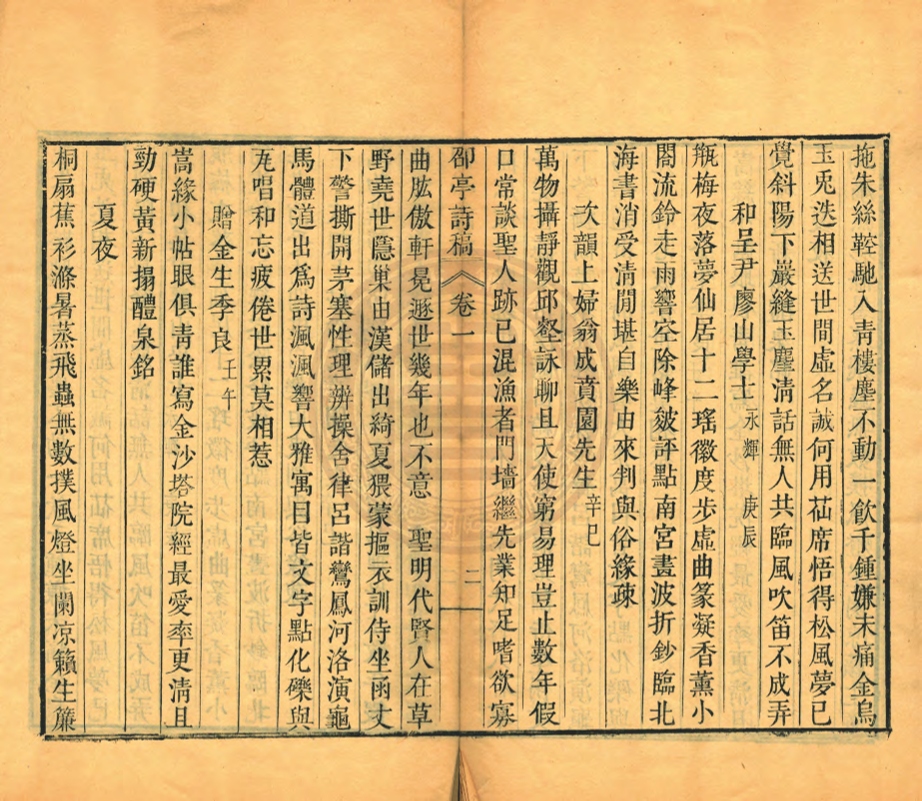 拖朱絲鞚馳入靑樓塵不動一飮千鍾嫌未痛金烏
玉兎迭相送世間虛名誠何用茘席悟得松風夢已
覺斜陽下巖縫玉麈淸話無人共臨風吹笛不成弄
和呈尹廖山學士永輝 庚辰
甁梅夜落夢仙居十二瑤徽度步虛曲篆凝香薰小
閤流鈴走雨響空除峰皴評點南宮畫波折鈔臨北
海書消受淸閒堪自樂由來判與俗緣疎
次韻上婦翁成賁園先生辛巳
萬物攝靜觀邱壑詠聊且天使窮易理豈止數年假
口常談聖人跡已混漁者門墻繼先業知足嗜欲寡
邵亭詩稿 卷一 二
曲肱傲軒冕遯世幾年也不意 聖明代賢人在草
野堯世隱巢由漢儲出綺夏猥蒙摳衣訓侍坐函丈
下警撕開茅塞性理辨操舍律呂諧鸞鳳河洛演龜
馬體道出爲詩渢渢響大雅寓目皆文字點化礫與
瓦唱和忘疲倦世累莫相惹
贈金生季良壬午
嵩緣小帖眼俱靑誰寫金沙塔院經最愛率更淸且
勁硬黃新搨醴泉銘
夏夜
桐扇蕉衫滌暑蒸飛蟲無數撲風燈坐闌凉籟生簾